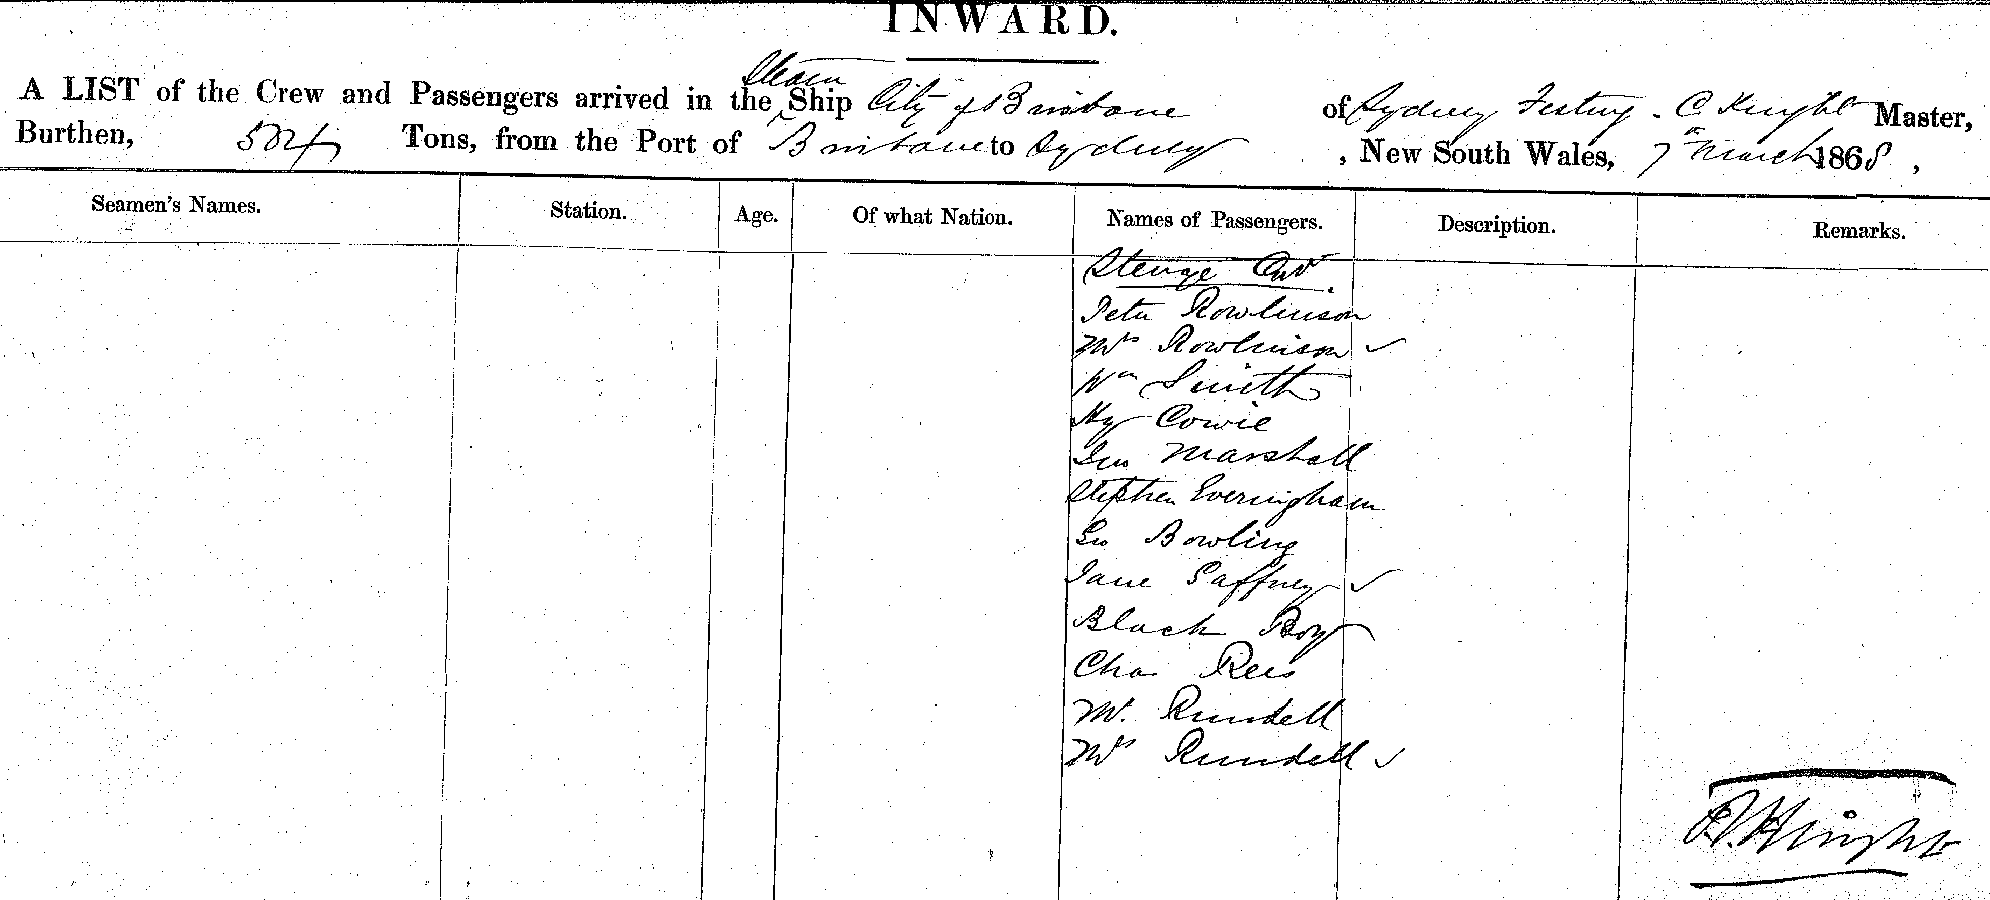 INWARD.
A LIST of the Crew and Passengers arrived in the Steam Ship City of Brisbane of Sydney Testing. C Knight Master,
Burthen, 504 Tons, from the Port of Brisbane to Sydney, New South Wales, 7th March 1868,
Seamen's Names. Station. Age. Of what Nation. Names of Passengers. Description. Remarks.
Peter Rowlinson
Mrs Rowlinson ✓
Wm Smith
Hy Cowie
Geo Marshall
Stephen Everingham
Geo Bowling
Jane Gaffney ✓
Black Boy
Chas Rees
Mr. Rundell
Mrs Rundell ✓
Knight